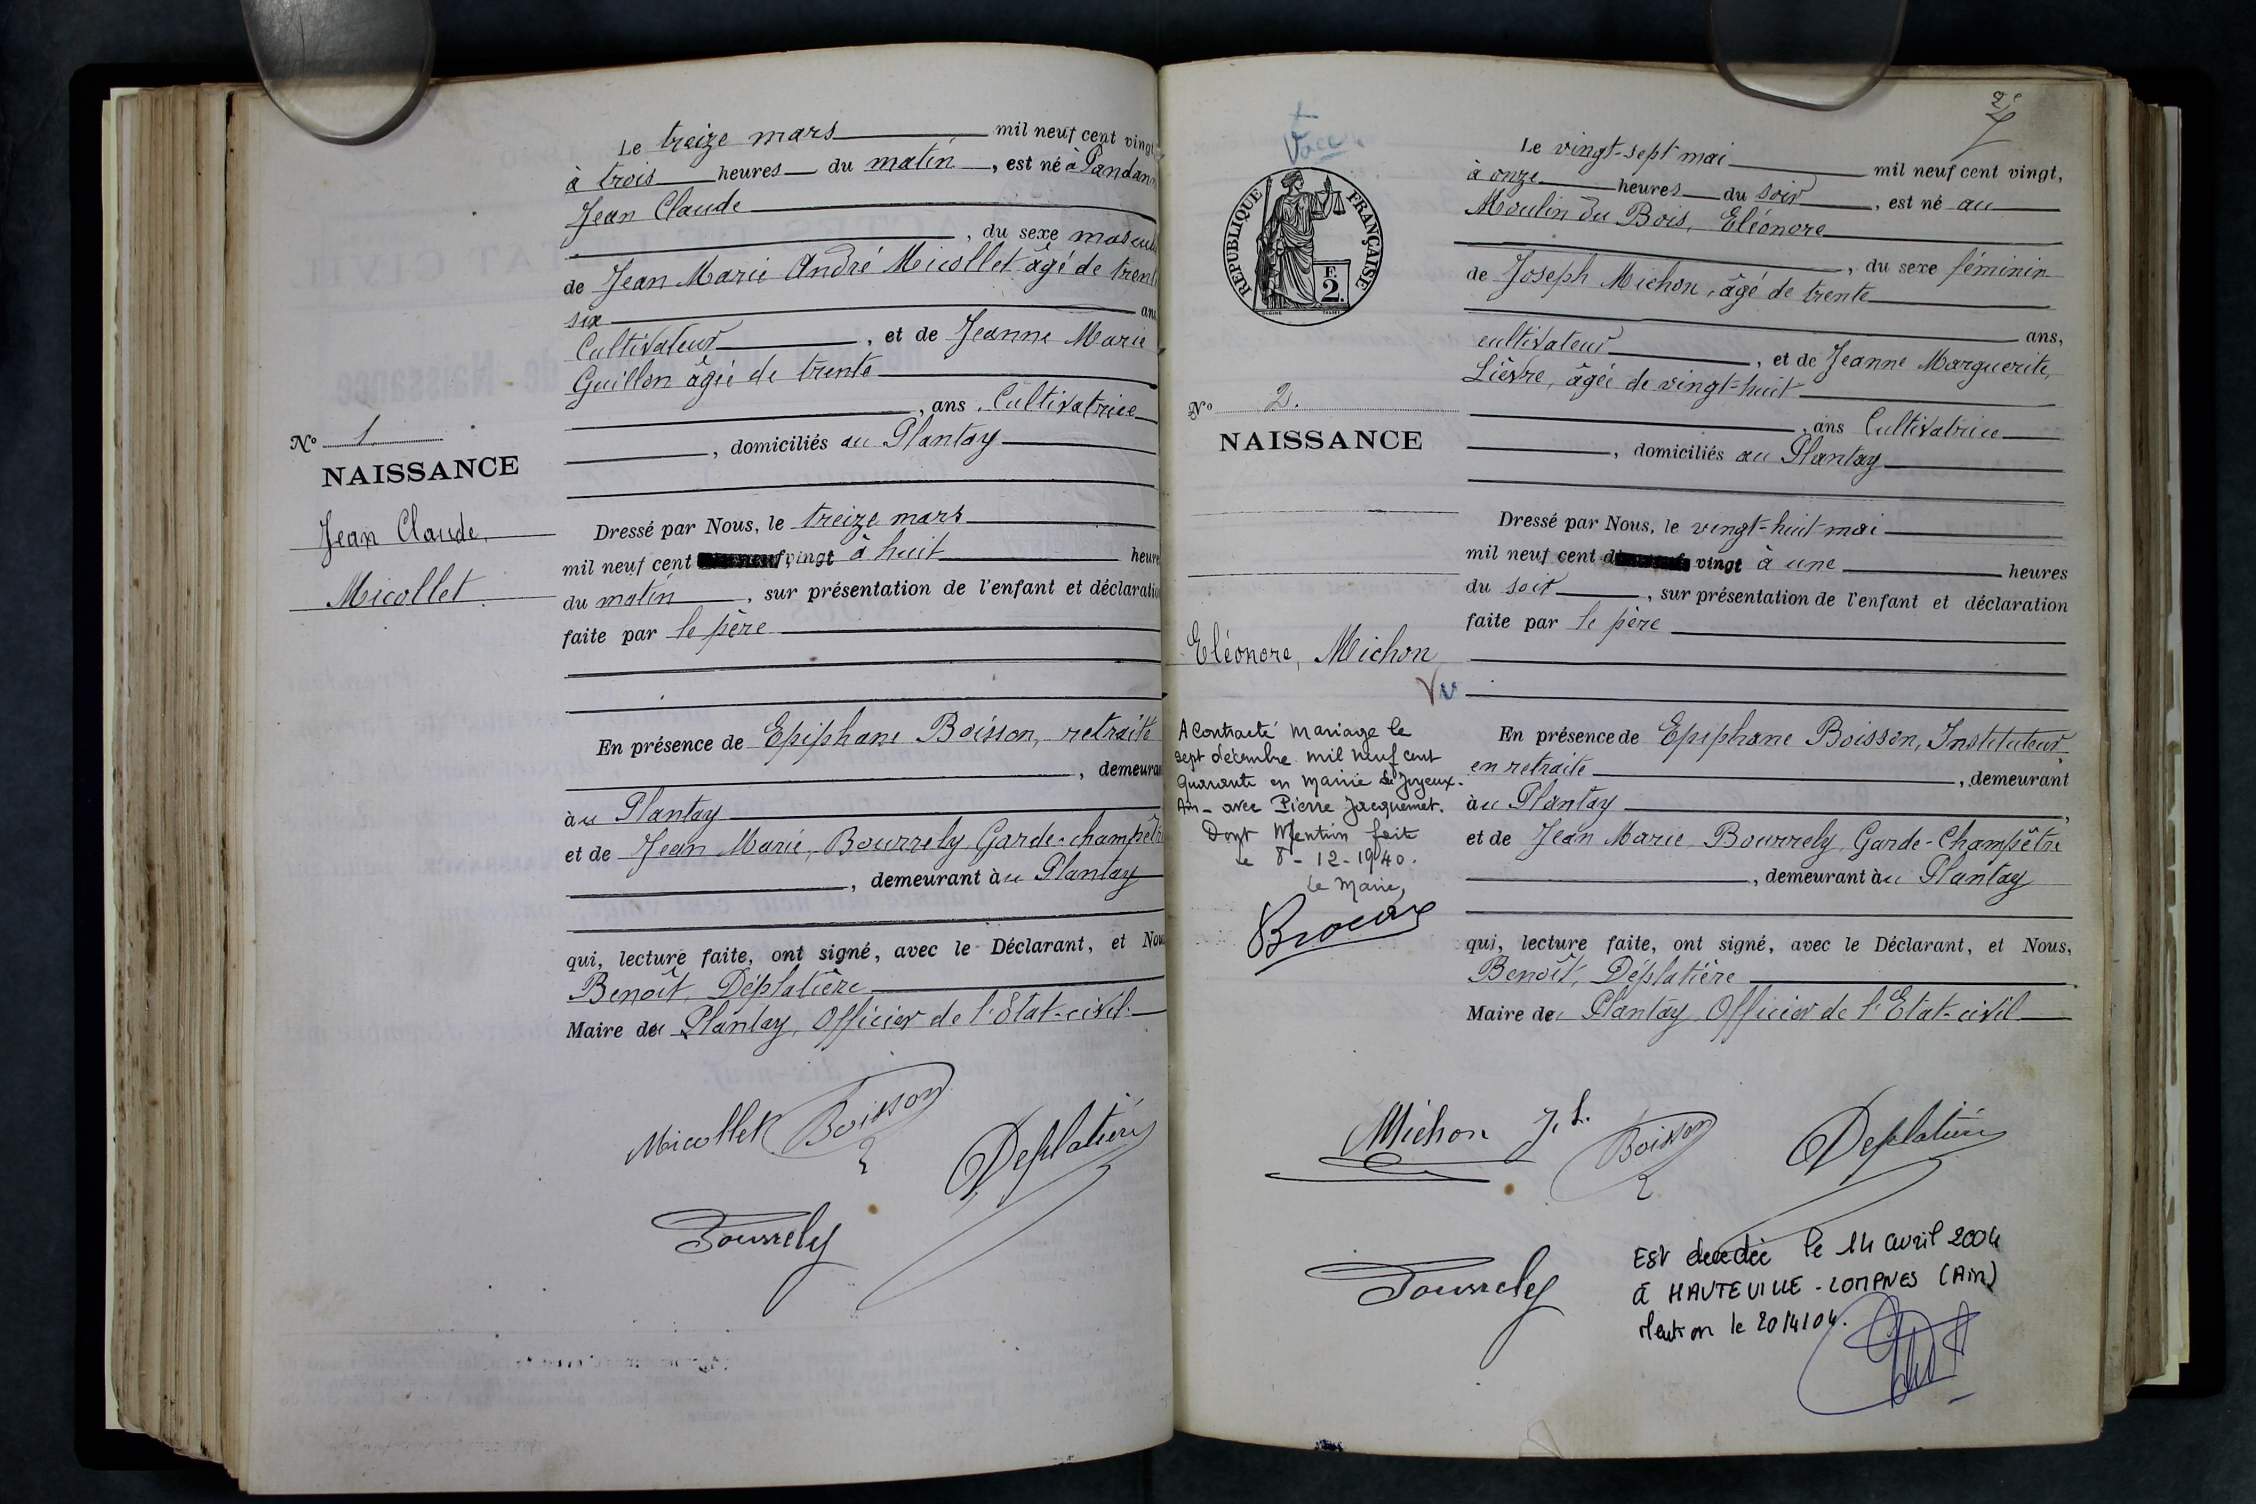 Le treize mars mil neuf cent vingt
à trois heures du matin, est né à Pandan
Jean Claude
, du sexe mascul
de Jean Marie André Micollet âgé de trente
six ans
Cultivateur, et de Jeanne Marie
Guillon âgée de trente
, ans, Cultivatrice
, domiciliés au Plantay
N° 1
NAISSANCE
Jean Claude,
Micollet.
Dressé par Nous, le treize mars
mil neuf cent vingt à huit heure
du matin, sur présentation de l'enfant et déclaratio
faite par le père
En présence de Epiphane Boisson, retraité
, demeuran
à u Plantay
et de Jean Marie, Bourrely, Garde-champêtre
, demeurant à u Plantay
qui, lecture faite, ont signé, avec le Déclarant, et Nou
Benoît, Déplatière
Maire du Plantay, Officier de l'Etat-civil.
Micollet Boisson
Deplatière
Bourrely
2
RÉPUBLIQUE FRANÇAISE
F.
2.
Le vingt-sept mai mil neuf cent vingt,
à onze heures du soir, est né au
Moulin du Bois, Eléonore
, du sexe féminin
de Joseph Michon, âgé de trente
ans,
cultivateur, et de Jeanne Marguerite,
Lièvre, âgée de vingt-huit
, ans Cultivatrice
, domiciliés au Plantay
N° 2.
NAISSANCE
Eléonore, Michon
Dressé par Nous, le vingt-huit mai
mil neuf cent vingt à une heures
du soir, sur présentation de l'enfant et déclaration
faite par le père
En présence de Epiphane Boisson, Instituteur
en retraite, demeurant
à u Plantay,
et de Jean Marie Bourrely, Garde-Champêtre
, demeurant à u Plantay
qui, lecture faite, ont signé, avec le Déclarant, et Nous,
Benoît, Déplatière
Maire de Plantay, Officier de l'Etat-civil
A Contracté Mariage le
sept décembre mil neuf cent
quarante en Mairie de Joyeux.
Ain - avec Pierre Jacquemet.
Dont Mention faite
le 8-12-1940.
Le Maire,
Michon J. L.
Boisson
Deplatière
Bourrely
Est décédée le 14 avril 2004
à HAUTEVILLE-LOMPNES (Ain)
Mention le 20/4/04.